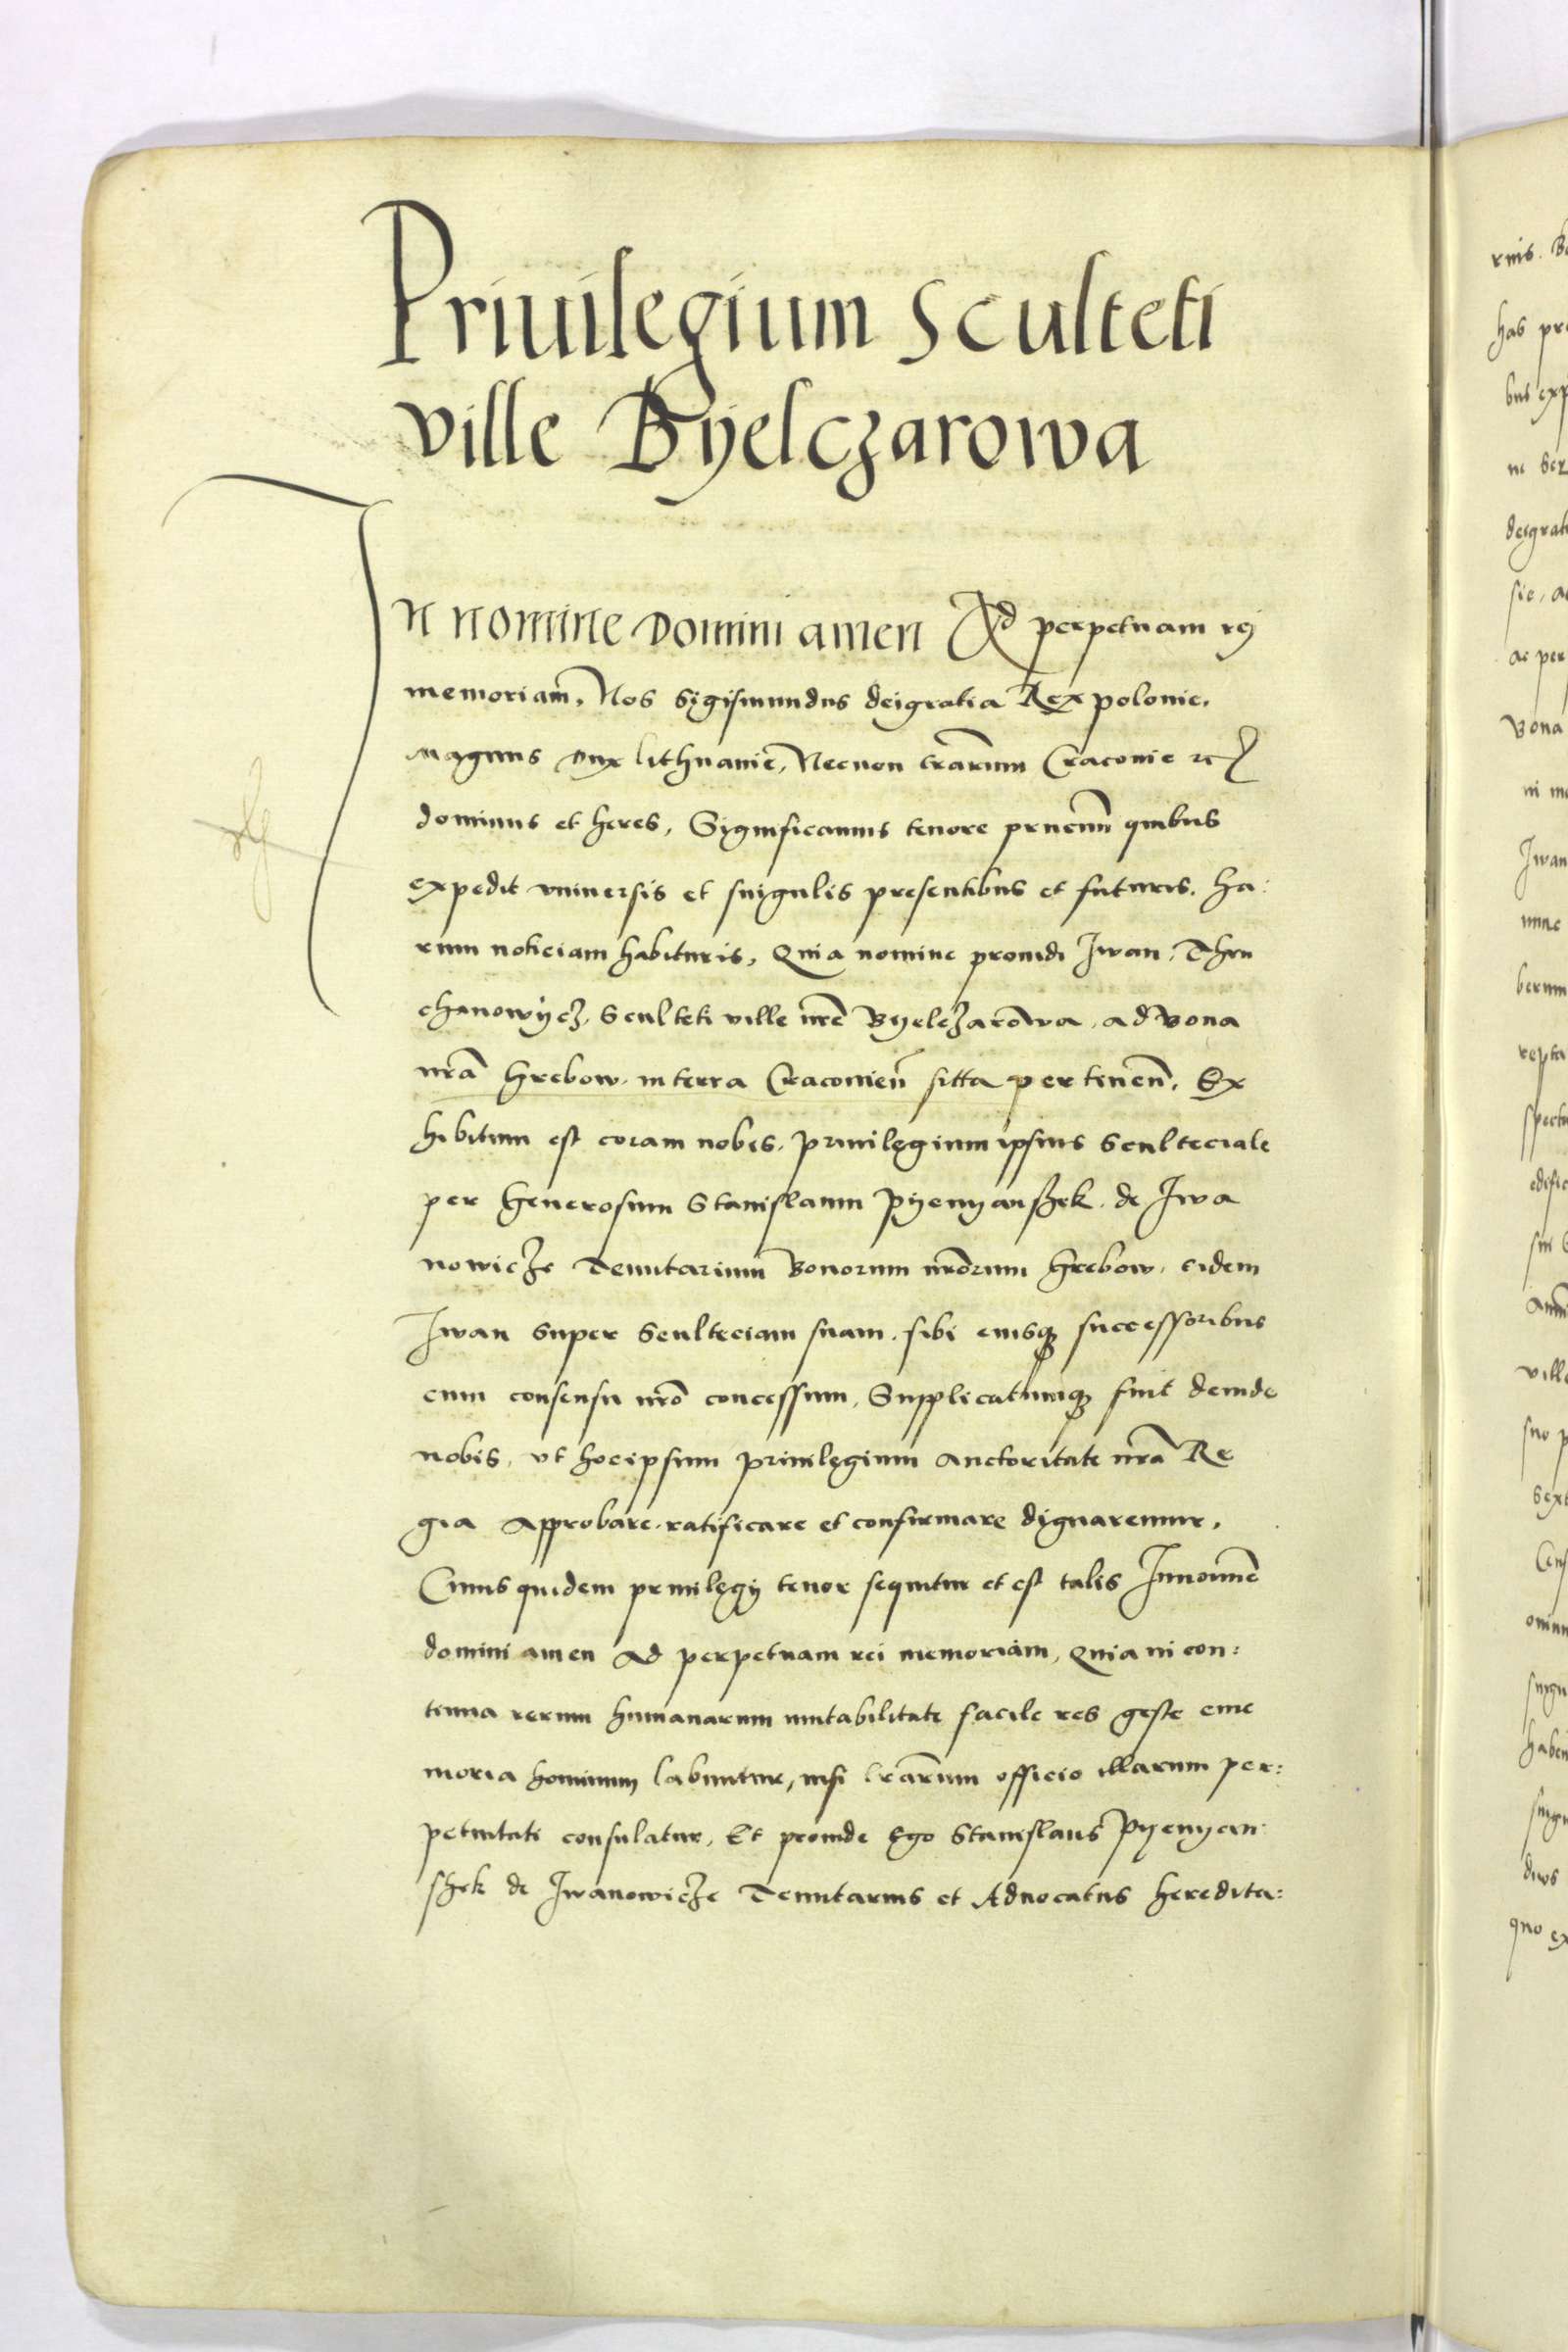 Priuilegium Sculteti
ville Byelczarowa
In nomine Domini amen Ad perpetuam rei
memoriam. Nos Sigismundus deigratia Rex polonie.
Magnus Dux lithuanie, Necnon trarum Craconie
dominus et heres, Significamus tenore prncium quibus
expedit vniuersis et singulis presentibus et futuris. ha:
rum noticiam habituris, Quia nomine prouidi Iwan. Thru
chanowycz. Sculteti ville nre Byelczarowa. ad Bona
nra Grebow. in terra Craconien sitta pertinen, Ex
hibitum est coram nobis. priuilegium ipsius Sculteciale
per Generosum Stanislaum Pyenyanschek. de Iwa
nowicze Tenutarium Bonorum nrorum Grebow. eidem
Iwan super Sculteciam suam. sibi eiusq successoribus
cum consensu nro concessum, Supplicatumq fuit deinde
nobis, vt hocipsum priuilegium auctoritate nra Re
gia Approbare. ratificare et confirmare dignaremur,
Cuius quidem priuilegij tenor sequitur et est talis Innomine
domini amen Ad perpetuam rei memoriam, Quia in con:
tinua rerum humanarum mutabilitate facile res geste eme
moria hominum labuntur, nisi lrarum officio illarum per:
petuitati consulatur, Et proinde Ego Stanislaus Pyenyan:
schek de Iwanowicze Tenutarius et Aduocatus heredita: